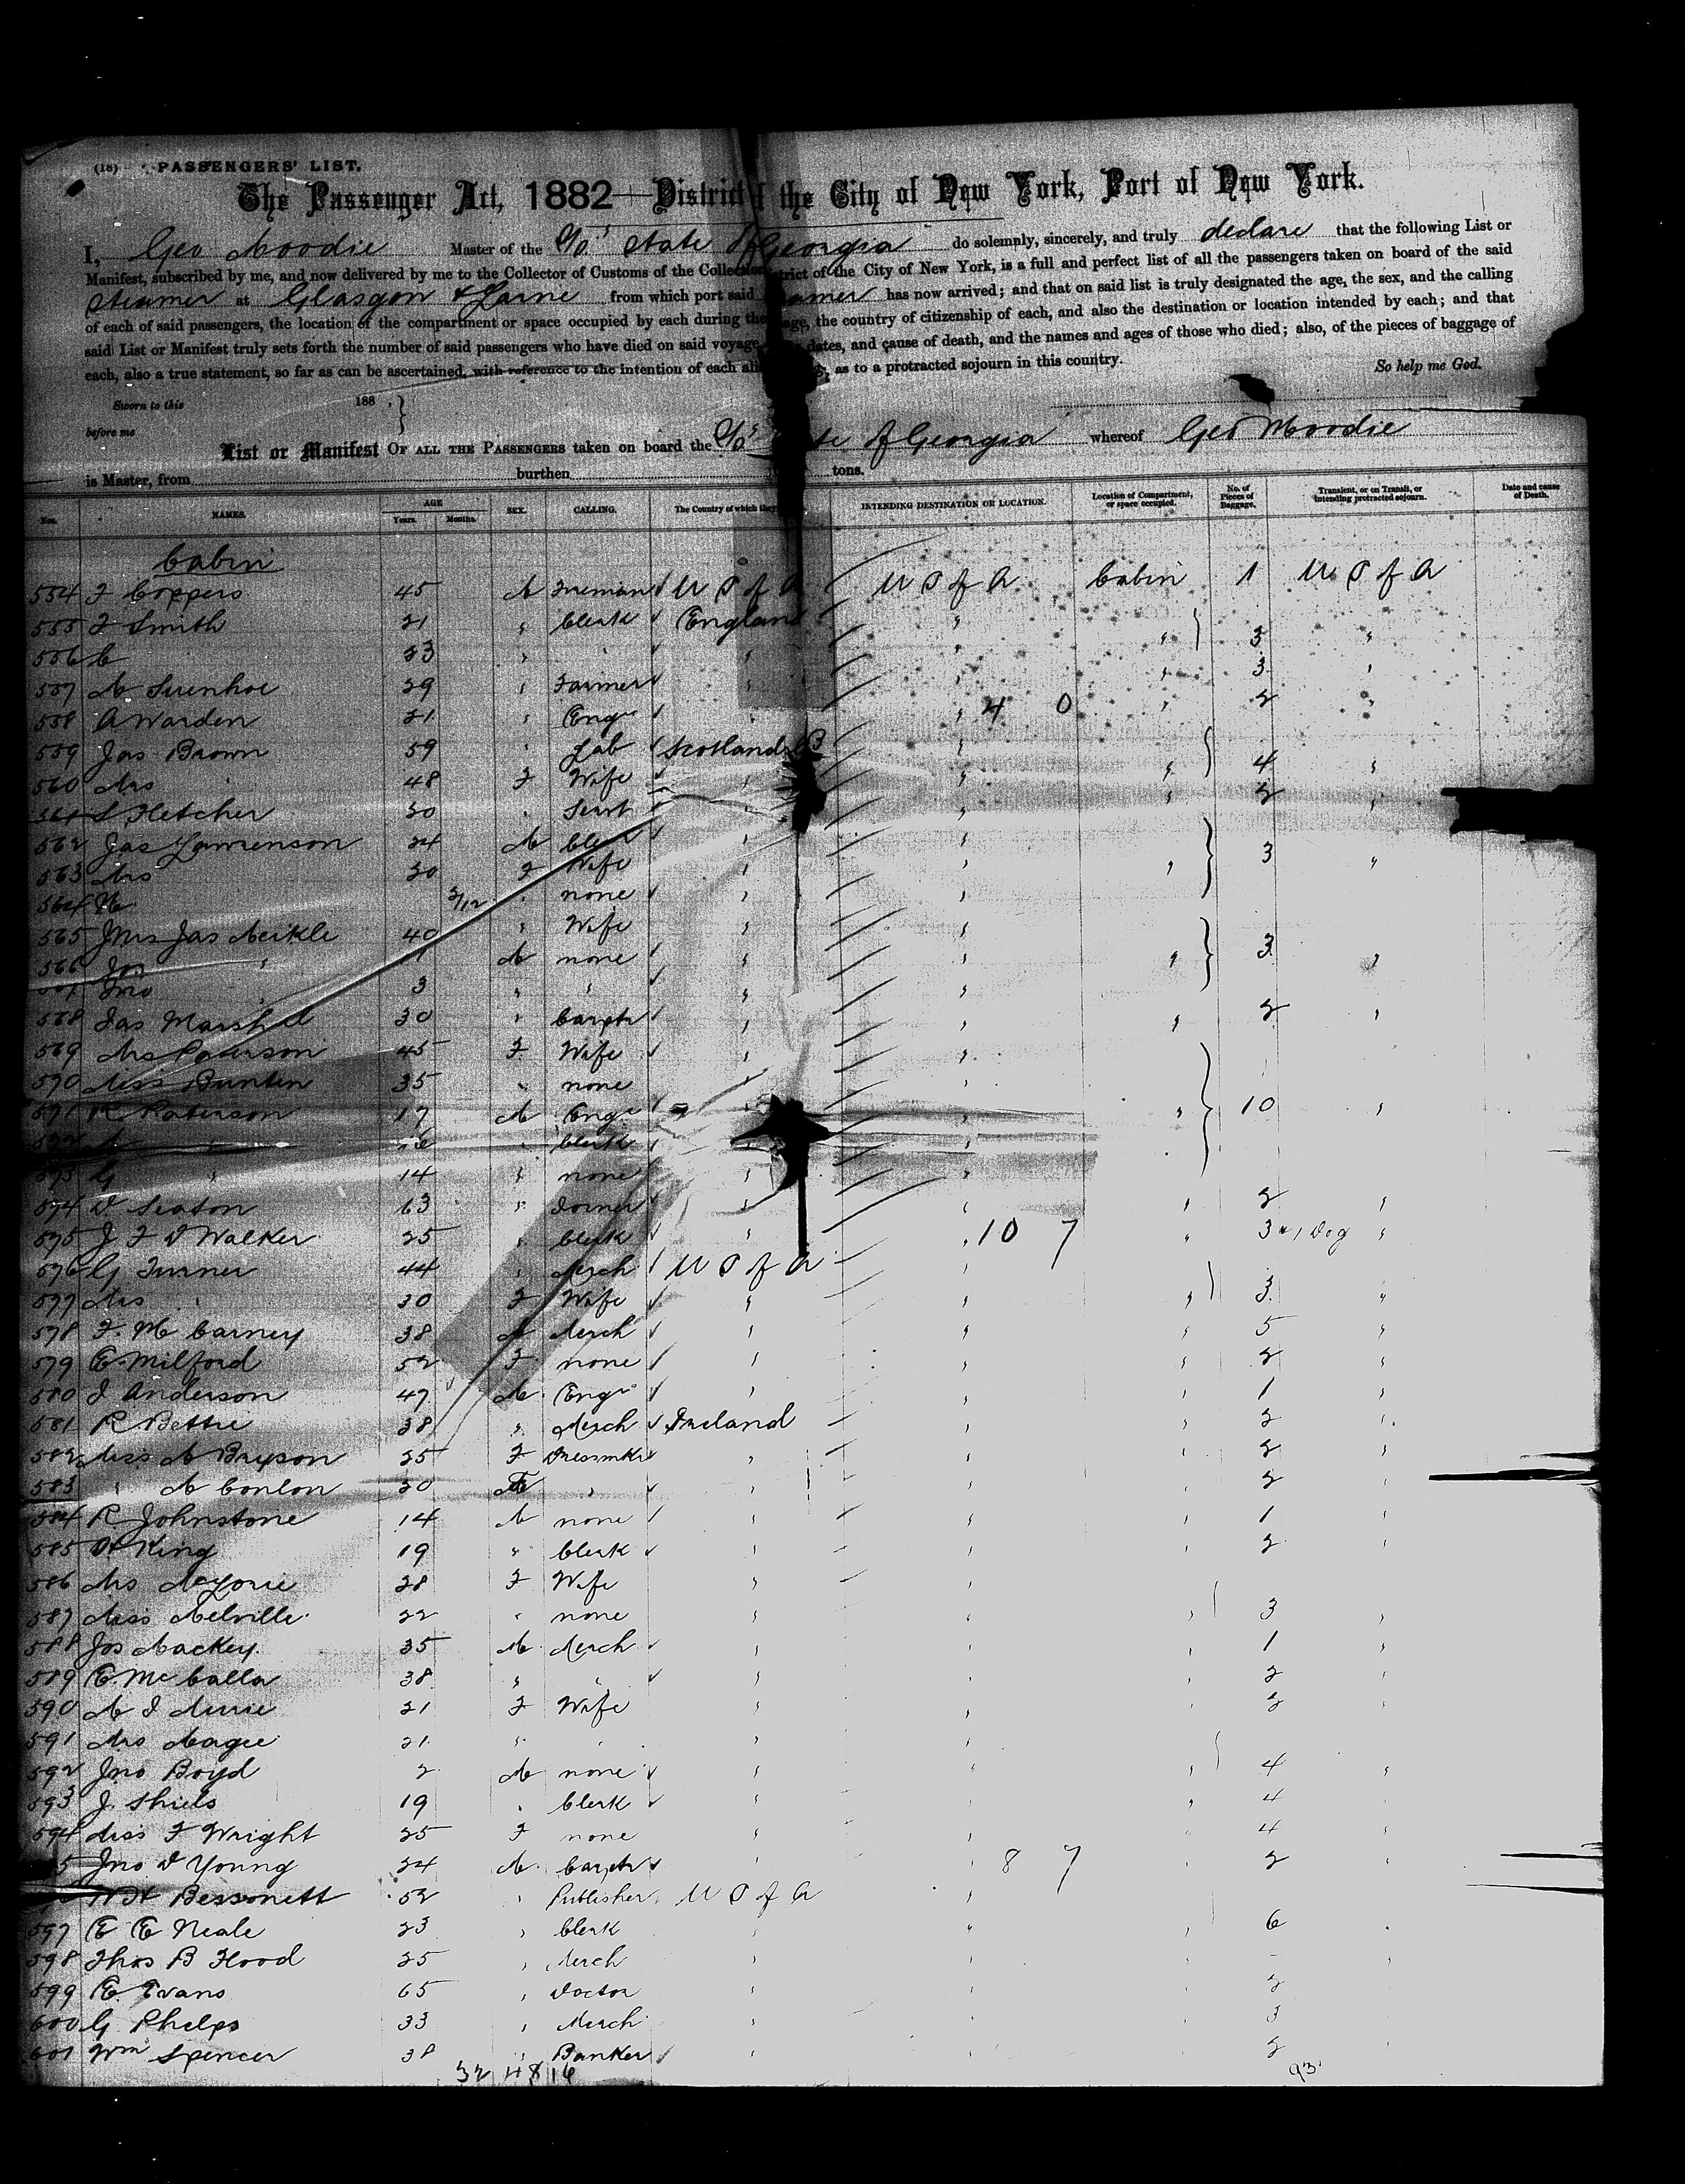 (18) PASSENGERS' LIST.
The Passenger Act, 1882—District of the City of New York, Port of New York.
I, Geo Moodie Master of the S/S State of Georgia do solemnly, sincerely, and truly declare that the following List or
Manifest, subscribed by me, and now delivered by me to the Collector of Customs of the Collection District of the City of New York, is a full and perfect list of all the passengers taken on board of the said
Steamer at Glasgow & Larne from which port said Steamer has now arrived; and that on said list is truly designated the age, the sex, and the calling
of each of said passengers, the location of the compartment or space occupied by each during the age, the country of citizenship of each, and also the destination or location intended by each; and that
said List or Manifest truly sets forth the number of said passengers who have died on said voyage dates, and cause of death, and the names and ages of those who died; also, of the pieces of baggage of
each, also a true statement, so far as can be ascertained, with reference to the intention of each as to a protracted sojourn in this country. So help me God.
Sworn to this 188 ,
before me
List or Manifest OF ALL THE PASSENGERS taken on board the S/S State of Georgia whereof Geo Moodie
is Master, from burthen tons.
Nos. NAMES. AGE Years. Months. SEX. CALLING. The Country of which they INTENDING DESTINATION OR LOCATION. Location of Compartment, or space occupied. No. of Pieces of Baggage. Transient, or on Transit, or intending protracted sojourn. Date and cause of Death.
Cabin
554 F Coppers 45 M Fireman U S of A U S of A Cabin 1 U S of A
555 F Smith 21 " Clerk England " " "
556 C 23 " " " " " 3 "
557 M 29 " Farmer " " " 3 "
558 A Warden 21 " Engr " 4 0 " 2 "
559 Jas Brown 59 " Lab Scotland "
560 Mrs " 48 F Wife " " " 4 "
561 S Fletcher 30 " Servt " " " 2 "
562 Jas Lawrenson 24 M Clerk " "
563 Mrs 30 F Wife " " " 3 "
564 3/12 " none " "
565 Mrs Jas Meikle 40 " Wife " "
566 Jas " M none " " " 3 "
567 Jno " 3 " " " "
568 Jas Marshal 30 " Carptr " " " 2 "
569 Mrs Paterson 45 F Wife " "
570 Miss Buntin 35 " none " "
571 R Paterson 17 M Engr " " " 10 "
572 " 16 " Clerk " "
573 G " 14 " none " "
574 D Seaton 63 " Joiner " " " 2 "
575 J F D Walker 25 " Clerk " " 10 7 " 3 & 1 Dog "
576 G Turner 44 " Merch U S of A "
577 Mrs " 30 F Wife " " " 3 "
578 F. Mc Carney 38 M Merch " " " 5 "
579 E Milford 52 F none " " " 2 "
580 J Anderson 47 M Engr " " " 1 "
581 R Bettie 38 " Merch Ireland " " 2 "
582 Miss M Bryson 25 F Dressmkr " " " 2 "
583 " M Conlon 30 F " " " " 2 "
584 R Johnstone 14 M none " " " 1 "
585 King 19 " Clerk " " " 2 "
586 Mrs 28 F Wife " "
587 Miss Melville 22 " none " " " 3 "
588 Jos Mackey 35 M Merch " " " 1 "
589 E. Mc Calla 38 " " " " " 2 "
590 M J 21 F Wife " " " 2 "
591 Mrs Magee 21 " " " "
592 Jno Boyd 2 M none " " " 4 "
593 J. Shiels 19 " Clerk " " " 4
594 Miss F Wright 25 F none " " " 4 "
5 Jno D Young 24 M Carptr " " 8 7 " 2 "
Bessonett 52 " Publisher U S of A "
597 E E Neale 23 " Clerk " " " 6 "
598 Thos B Flood 25 " Merch " " " - "
599 E. Evans 65 " Doctor " " " 2
600 G. Phelps 33 " Merch " " " 3
601 Wm Spencer 38 " Banker " " " 2
32 48 16 93